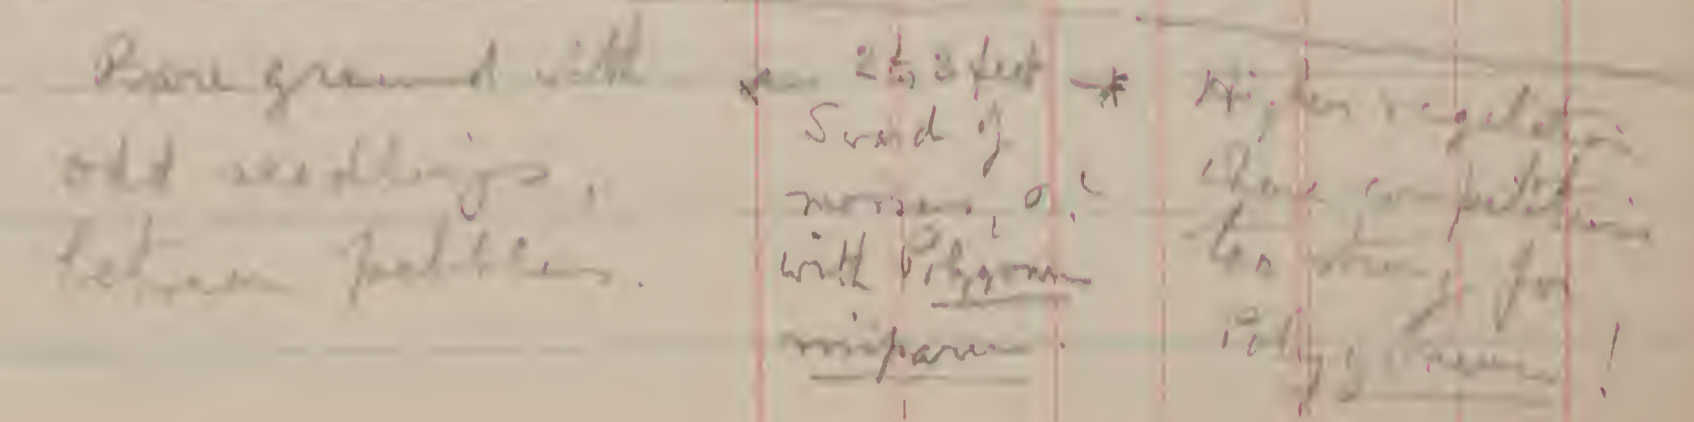 Bare ground with
odd seedlings,
between pebbles.
← 2 to 3 feet →
Sward of
mosses,
with Polygonum
viviparum.
Higher vegetation
where competition
too strong for
Polygonum!